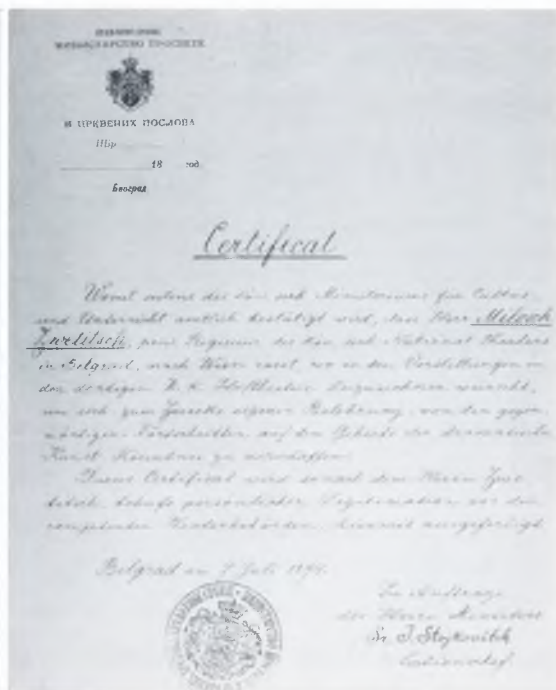 МИНИСТАРСТВО ПРОСВЕТЕ
И ЦРКВЕНИХ ПОСЛОВА
ПБр
18 год.
Београд
Certificat
Womit seitens des kön. serb. Ministeriums für Cultus
und Unterricht amtlich bestätigt wird, dass Herr Milosch
Zwetitsch, Regisseur des kön. serb. National Theaters
in Belgrad, nach Wien reist, wo er den Vorstellungen in
den dortigen K. K. Hoftheatern beizuwohnen wünscht,
um sich zum Zwecke eigener Belehrung, von den gegen-
wärtigen Fortschritten auf dem Gebiete der dramatischen
Kunst Kenntnis zu verschaffen.
Dieses Certificat wird sonach dem Herrn Zwe
titsch, behufs persönlicher Legitimation vor den
competenten, hiermit ausgefertigt.
Belgrad am 7 Juli
Im Auftrage
des Herrn Ministers
Dr. J. Stojkovitch